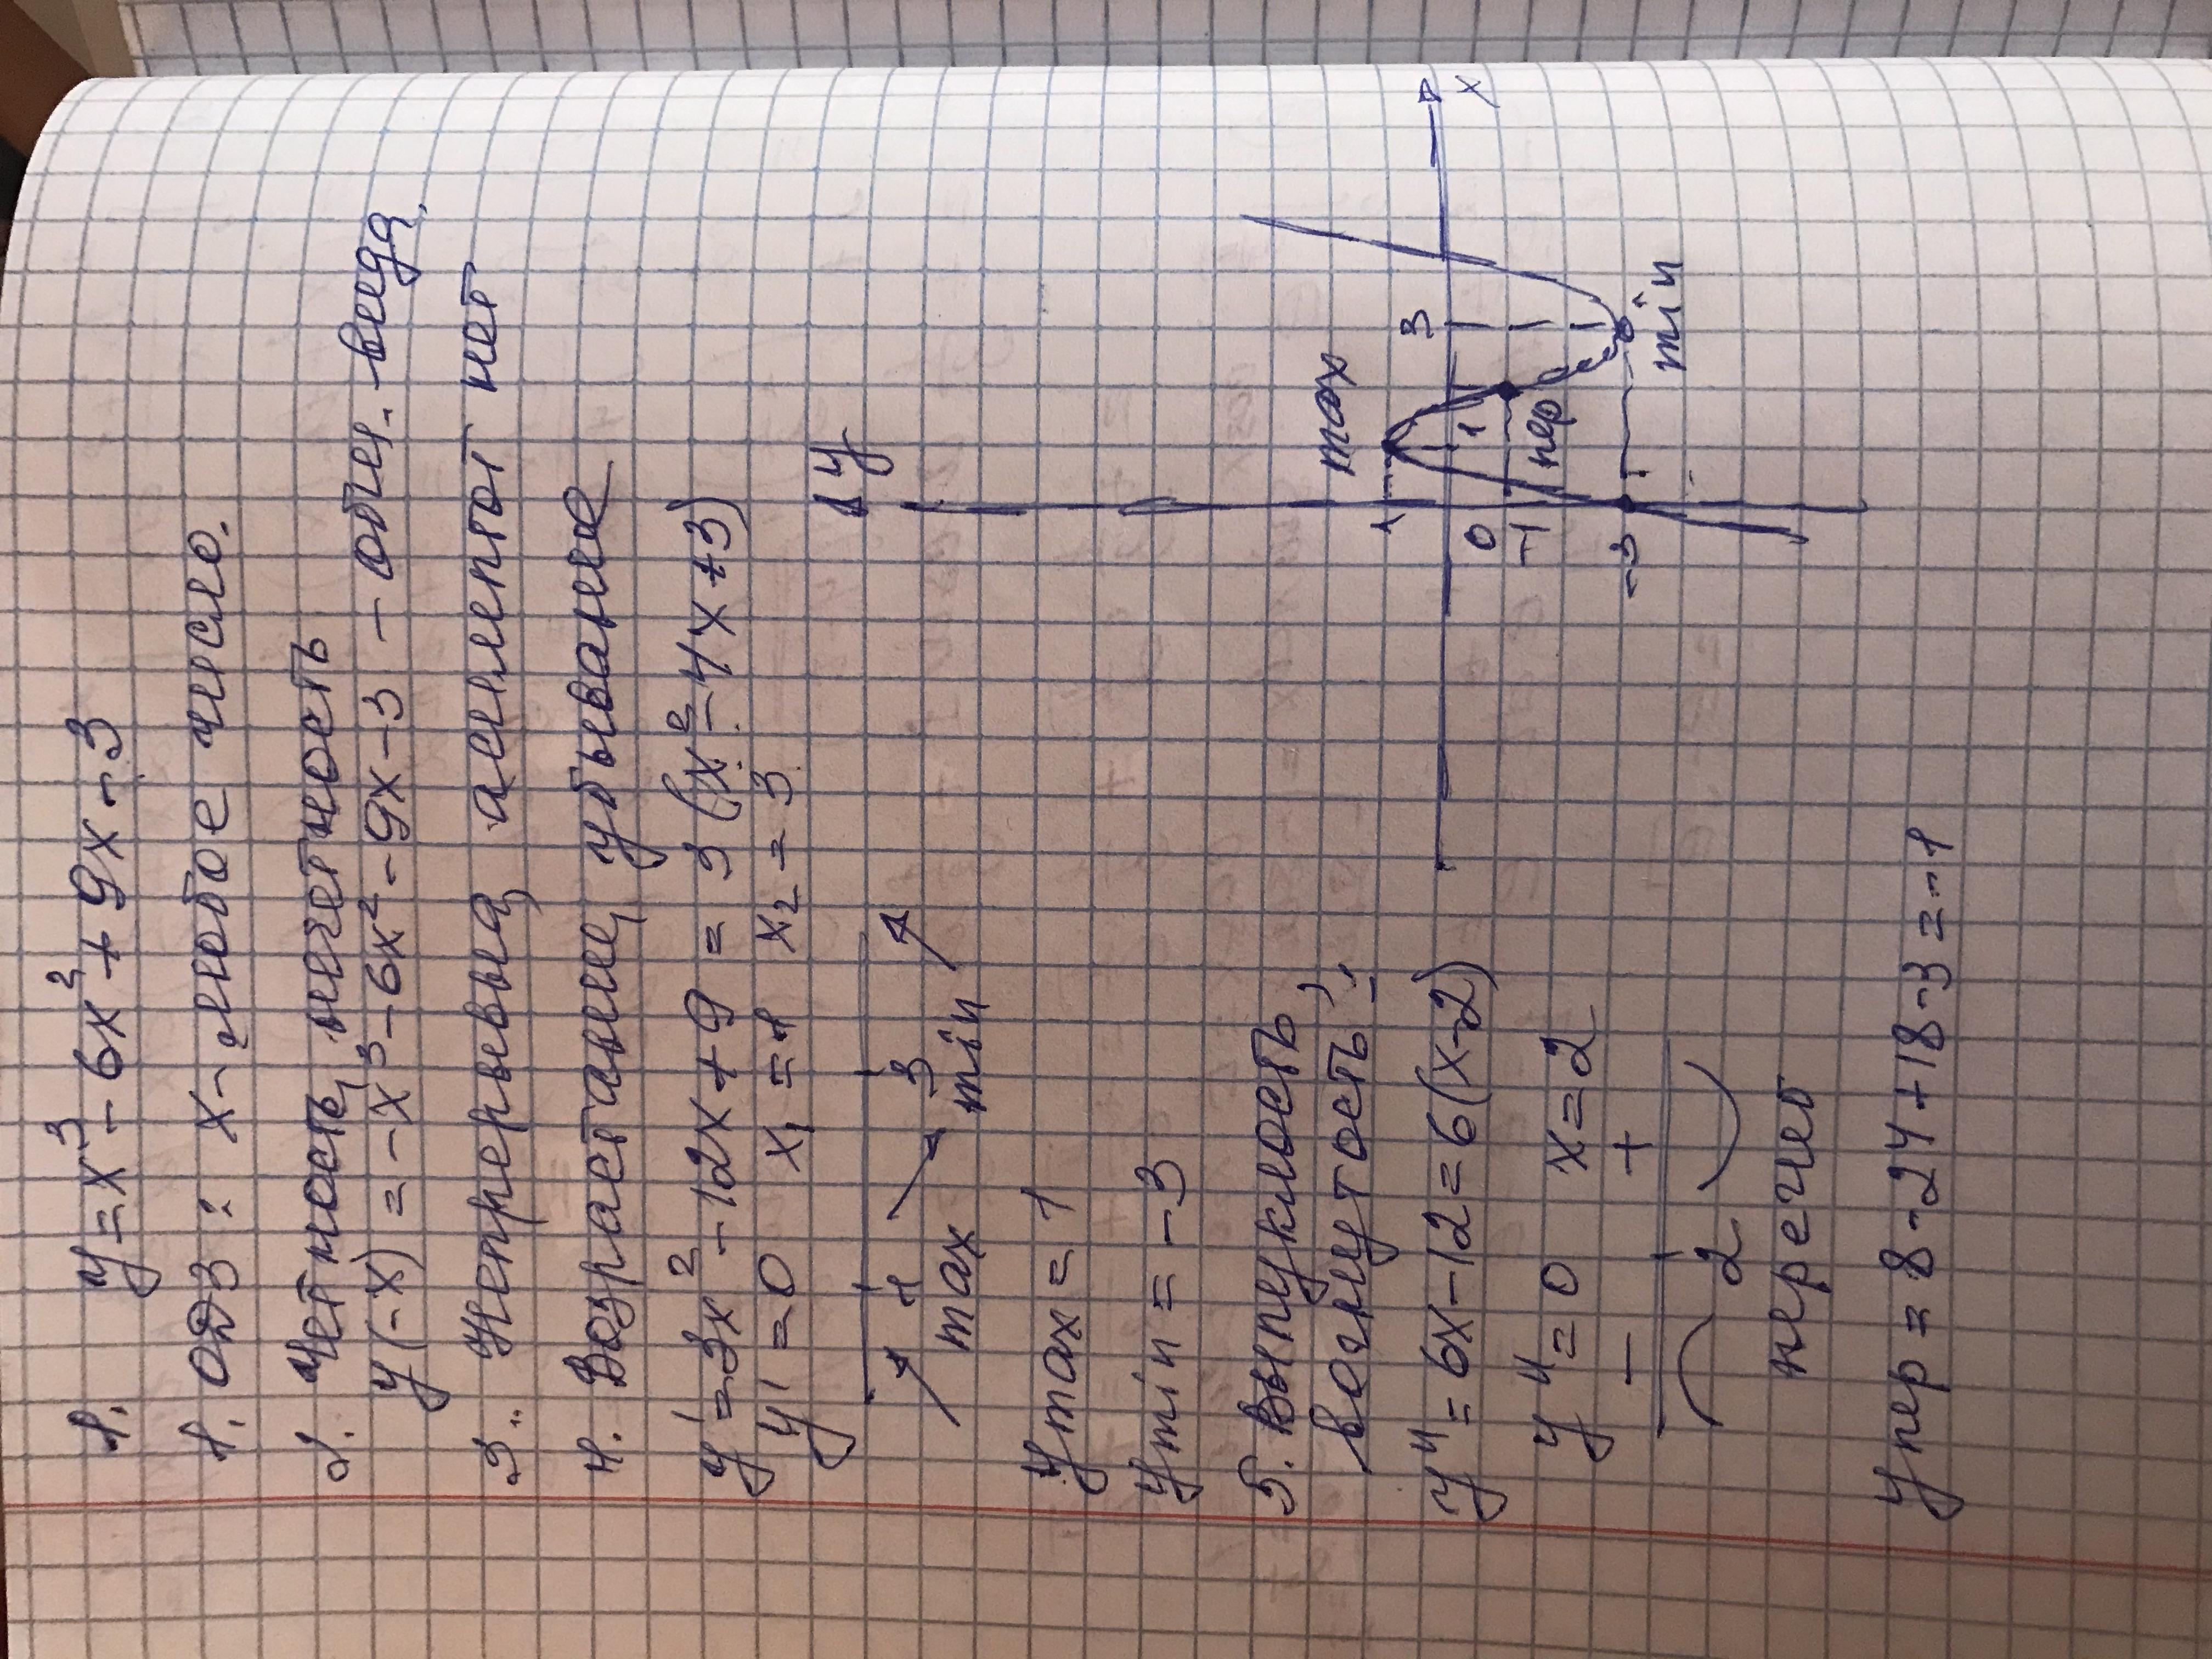 1. y = x³ - 6x² + 9x - 3
1. ОДЗ: x - любое число.
2. Четность, нечетность
y(-x) = -x³ - 6x² - 9x - 3 - общ. вида.
3. Непрерывна, асимптот нет
4. Возрастание, убывание
y' = 3x² - 12x + 9 = 3(x² - 4x + 3)
y' = 0 x₁ = 1 x₂ = 3
1 3
max min
y max = 1
y min = -3
5. Выпуклость,
вогнутость:
y'' = 6x - 12 = 6(x-2)
y'' = 0 x = 2
- +
2
перегиб
y пер = 8 - 24 + 18 - 3 = -1
y
max
1
0 1 3 x
-1 пер
-3 min